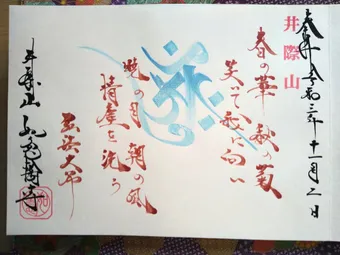 奉拝 令和三年十一月二日
井際山
春の華 秋の菊
笑って我に向い
暁の月 朝の風
情塵を洗う
弘法大師
井際山